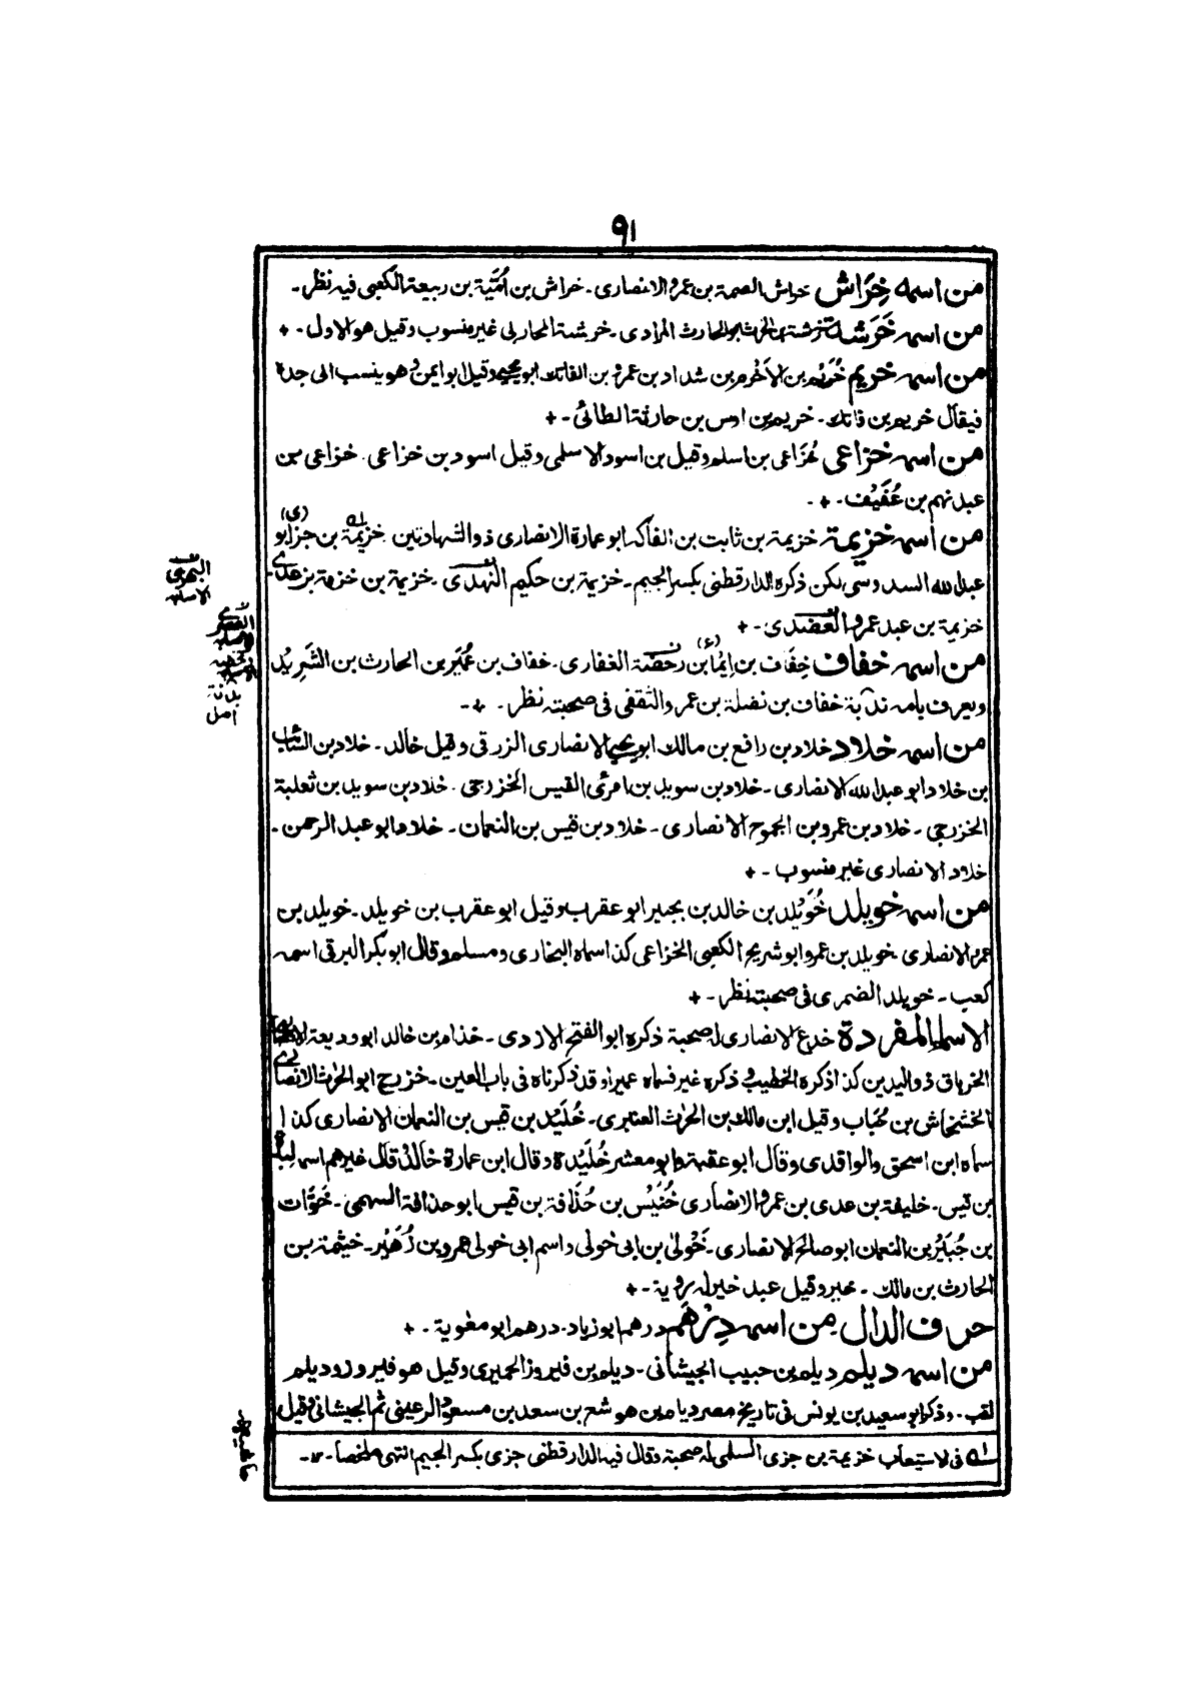 ٩١
من اسمه خِرَاش خراش الصمة بن عمرو الانصارى۔ خراش بن اُمَيّة بن ربيعة الكعبى فيه نظر۔
من اسمہ خَرَشة خرشة بن الحرث ابو الحارث المرادى۔ خرشة المحاربى غير منسوب وقيل هو الاول۔ +
من اسمہ خريم خُرَيْم بن الاَخْرم بن شداد بن عمرو بن الفاتك ابو يحيى وقيل ابو ايمن وهو ينسب الى جده
فيقال خريم بن فاتك۔ خريم بن اوس بن حارثة الطائى۔ +
من اسمہ خزاعى خُزَاعى بن اسلم وقيل بن اسود الاسلمى وقيل اسود بن خزاعى۔ خزاعى بن
عبد نهم بن عُفَيْف۔ +۔
من اسمہ خزيمة خزيمة بن ثابت بن الفاكہ ابو عمارة الانصارى ذو الشهادتين۔ خزيمة بن جز (ى) ابو
عبد الله السدوسى لكن ذكره الدارقطنى بكسر الجيم۔ خزيمة بن حكيم النهدى۔ خزيمة بن خزمة بن عدى۔
خزيمة بن عبد عمرو العضدى۔ +
من اسمہ خفاف خِفَاف بن اِيْمَا (ء) بن رحضة الغفارى۔ خفاف بن عُمَير بن الحارث بن الشَرِيْد
ويعرف بامه ندبة خفاف بن نضلة بن عمرو الثقفى فى صحبته نظر۔ +۔
من اسمہ خلاد خلاد بن رافع بن مالك ابو يحيى الانصارى الزرقى وقيل خالد۔ خلاد بن السائب
بن خلاد ابو عبد الله الانصارى۔ خلاد بن سويد بن امرئ القيس الخزرجى۔ خلاد بن سويد بن ثعلبة
الخزرجى۔ خلاد بن عمرو بن الجموح الانصارى۔ خلاد بن قيس بن النعمان۔ خلاد ابو عبد الرحمن۔
خلاد الانصارى غير منسوب۔ +
من اسمہ خويلد خُوَيْلد بن خالد بن بجير ابو عقرب وقيل ابو عقرب بن خويلد۔ خويلد بن
عمرو الانصارى۔ خويلد بن عمرو ابو شريح الكعبى الخزاعى كذا سماه البخارى ومسلم وقال ابو بكر البرقى اسمہ
كعب۔ خويلد الضمرى فى صحبته نظر۔ +
الاسماء المفردة خدع الانصارى له صحبة ذكره ابو الفتح الازدى۔ خذام بن خالد ابو وديعة الانصارى
الخرباق ذو اليدين كذا ذكره الخطيب و ذكره غير فسماه عمير او قد ذكرناه فى باب العين۔ خزرج ابو الحرث الانصارى
الخشخاش بن خباب وقيل ابن مالك بن الحرث العنبرى۔ خُلَيد بن قيس بن النعمان الانصارى كذا
سماه ابن اسحق والواقدى وقال ابو عقبة وابو معشر خُلَيْدة وقال ابن عمارة خالد وقال غيرهم اسمه
بن قيس۔ خليفة بن عدى بن عمرو الانصارى خُنَيْس بن حُذَافة بن قيس ابو حذافة السهمى۔ خَوَّات
بن جُبَيْر بن النعمان ابو صالح الانصارى۔ خَوْلى بن ابى خولى واسم ابى خولى عمرو بن زُهَيْر۔ خيثمة بن
الحارث بن مالك۔ خير وقيل عبد خير له رؤية۔ +
حرف الدال من اسمه دِرْهَم درهم ابو زياد۔ درهم ابو معوية۔ +
من اسمہ ديلم ديلم بن حبيب الجيشانى۔ ديلم بن فيروز الحميرى وقيل هو فيروز وديلم
لقب۔ وذكر ابو سعيد بن يونس فى تاريخ مصر ديلم بن هوشع بن سعد بن مسعود الرعينى ثم الجيشانى وقيل
لہ فى الاستيعاب خزيمة بن جزى السلمى له صحبة وقال فيه الدارقطنى جزى بكسر الجيم انتهى ملخصا۔ ١٢۔